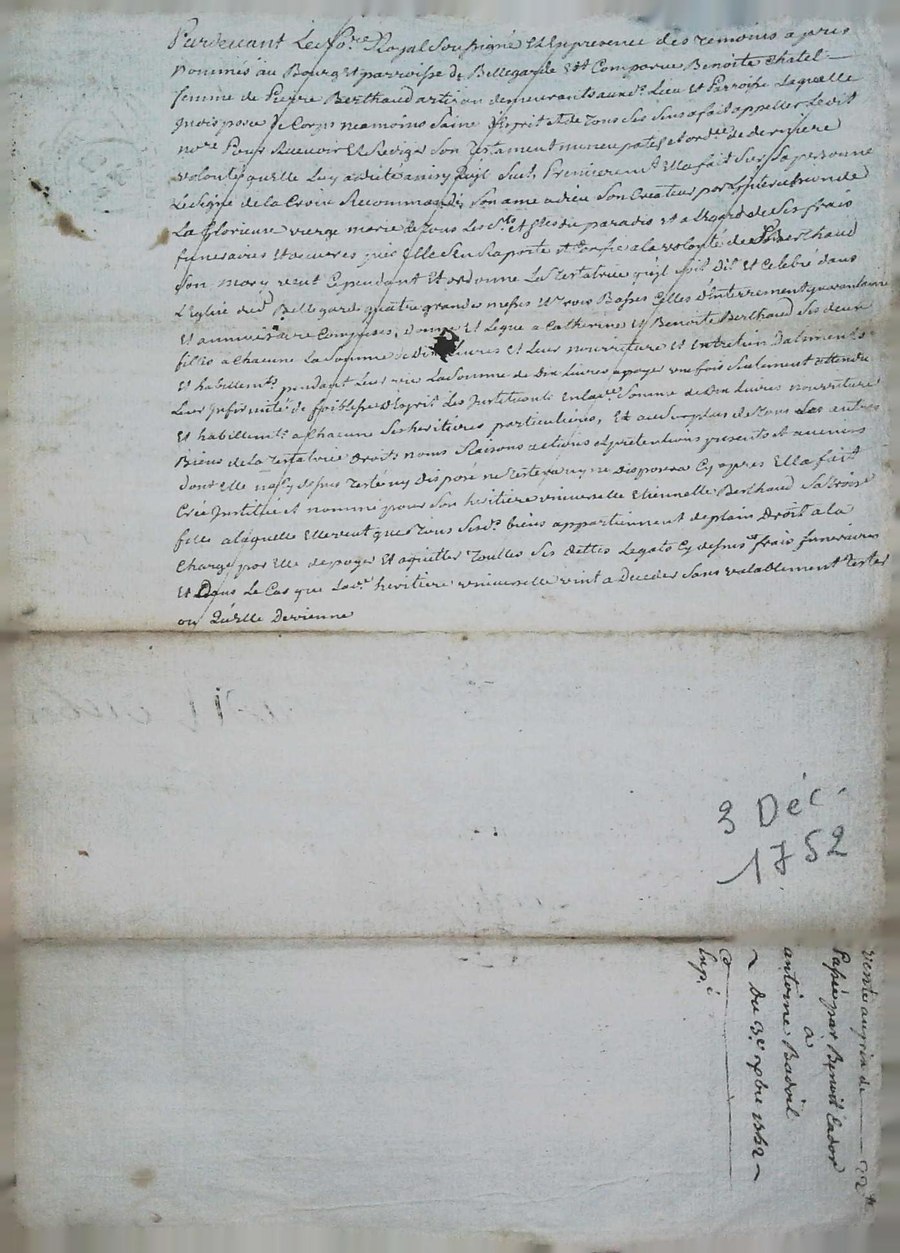 Pardevant Le No.re Royal Soussigné Et En presence des temoins apres
Nommés au Bourg Et parroisse de Bellegarde Est Comparue Benoiste Chatel
femme de Pierre Berthaud artizan demeurants aux d. Lieu Et Parroisse Laquelle
de Corps neamoins Saine d'Esprit Et de Tous Ses Sens a fait appeller Ledit
no.re Pour Recevoir Et Rediger Son Testament nuncupatif et ord.ce de derniere
volonté quelle Luy a dicté ainsy quil Suit, Premierem.t Ella fait Sur Sa personne
Le Signe de la Croix Recommandé Son ame a dieu Son Createur par L'intercession de
La Glorieuse vierge marie de Tous Les S.ts et S.tes du paradis et a L'egard de Ses frais
funeraires Et oeuvres pies Elle S'En Raporte Et Confie a la volonté de Berthaud
Son mary veut Cependant Et ordonne La Testatrice qu'il Soit Dit Et Celebré dans
L'Eglise dud. Bellegarde quatre grandes messes Et Trois Basses Celles d'interrement quarantaine
Et anniversaire Comprises, donne Et Legue a Catherine Et Benoite Berthaud Ses deux
filles a Chacune La Somme de Dix Livres Et Leur nourriture Et Entretien D'aliments
Et habillem.ts pendant Leur vie La Somme de Dix Livres a payer une fois Seulement attendu
Leur Infirmité de foiblesse d'Esprit Les Instituant En lad. Somme de Dix Livres nourriture
Et habillem.ts a Chacune Ses heritieres particulieres, Et au Surplus de Tous Les autres
Biens de la Testatrice Droits noms Raisons actions Et pretentions presents Et avenirs
dont Elle na Cy devant Testé ny Disposé ne Testera ny ne Disposera Cy apres Ella fait
Créé Institué et nommé pour Son heritiere universelle Etiennette Berthaud Sa Troisième
fille a laquelle Elle veut que Tous Sesd. biens appartiennent de plain Droit a la
Charge par Elle de payer Et aquitter Touttes Ses dettes Legats Cy dessus frais funeraires
Et Dans Le Cas que Lad. heritiere universelle vint a Deceder Sans valablement Tester
ou Qu'Elle Devienne
3 Déc.
1752
vente au prix de —— 22
Passée par Benoit Cador
a
antoine Badoil
~ Du 3.e xbre 1752 ~